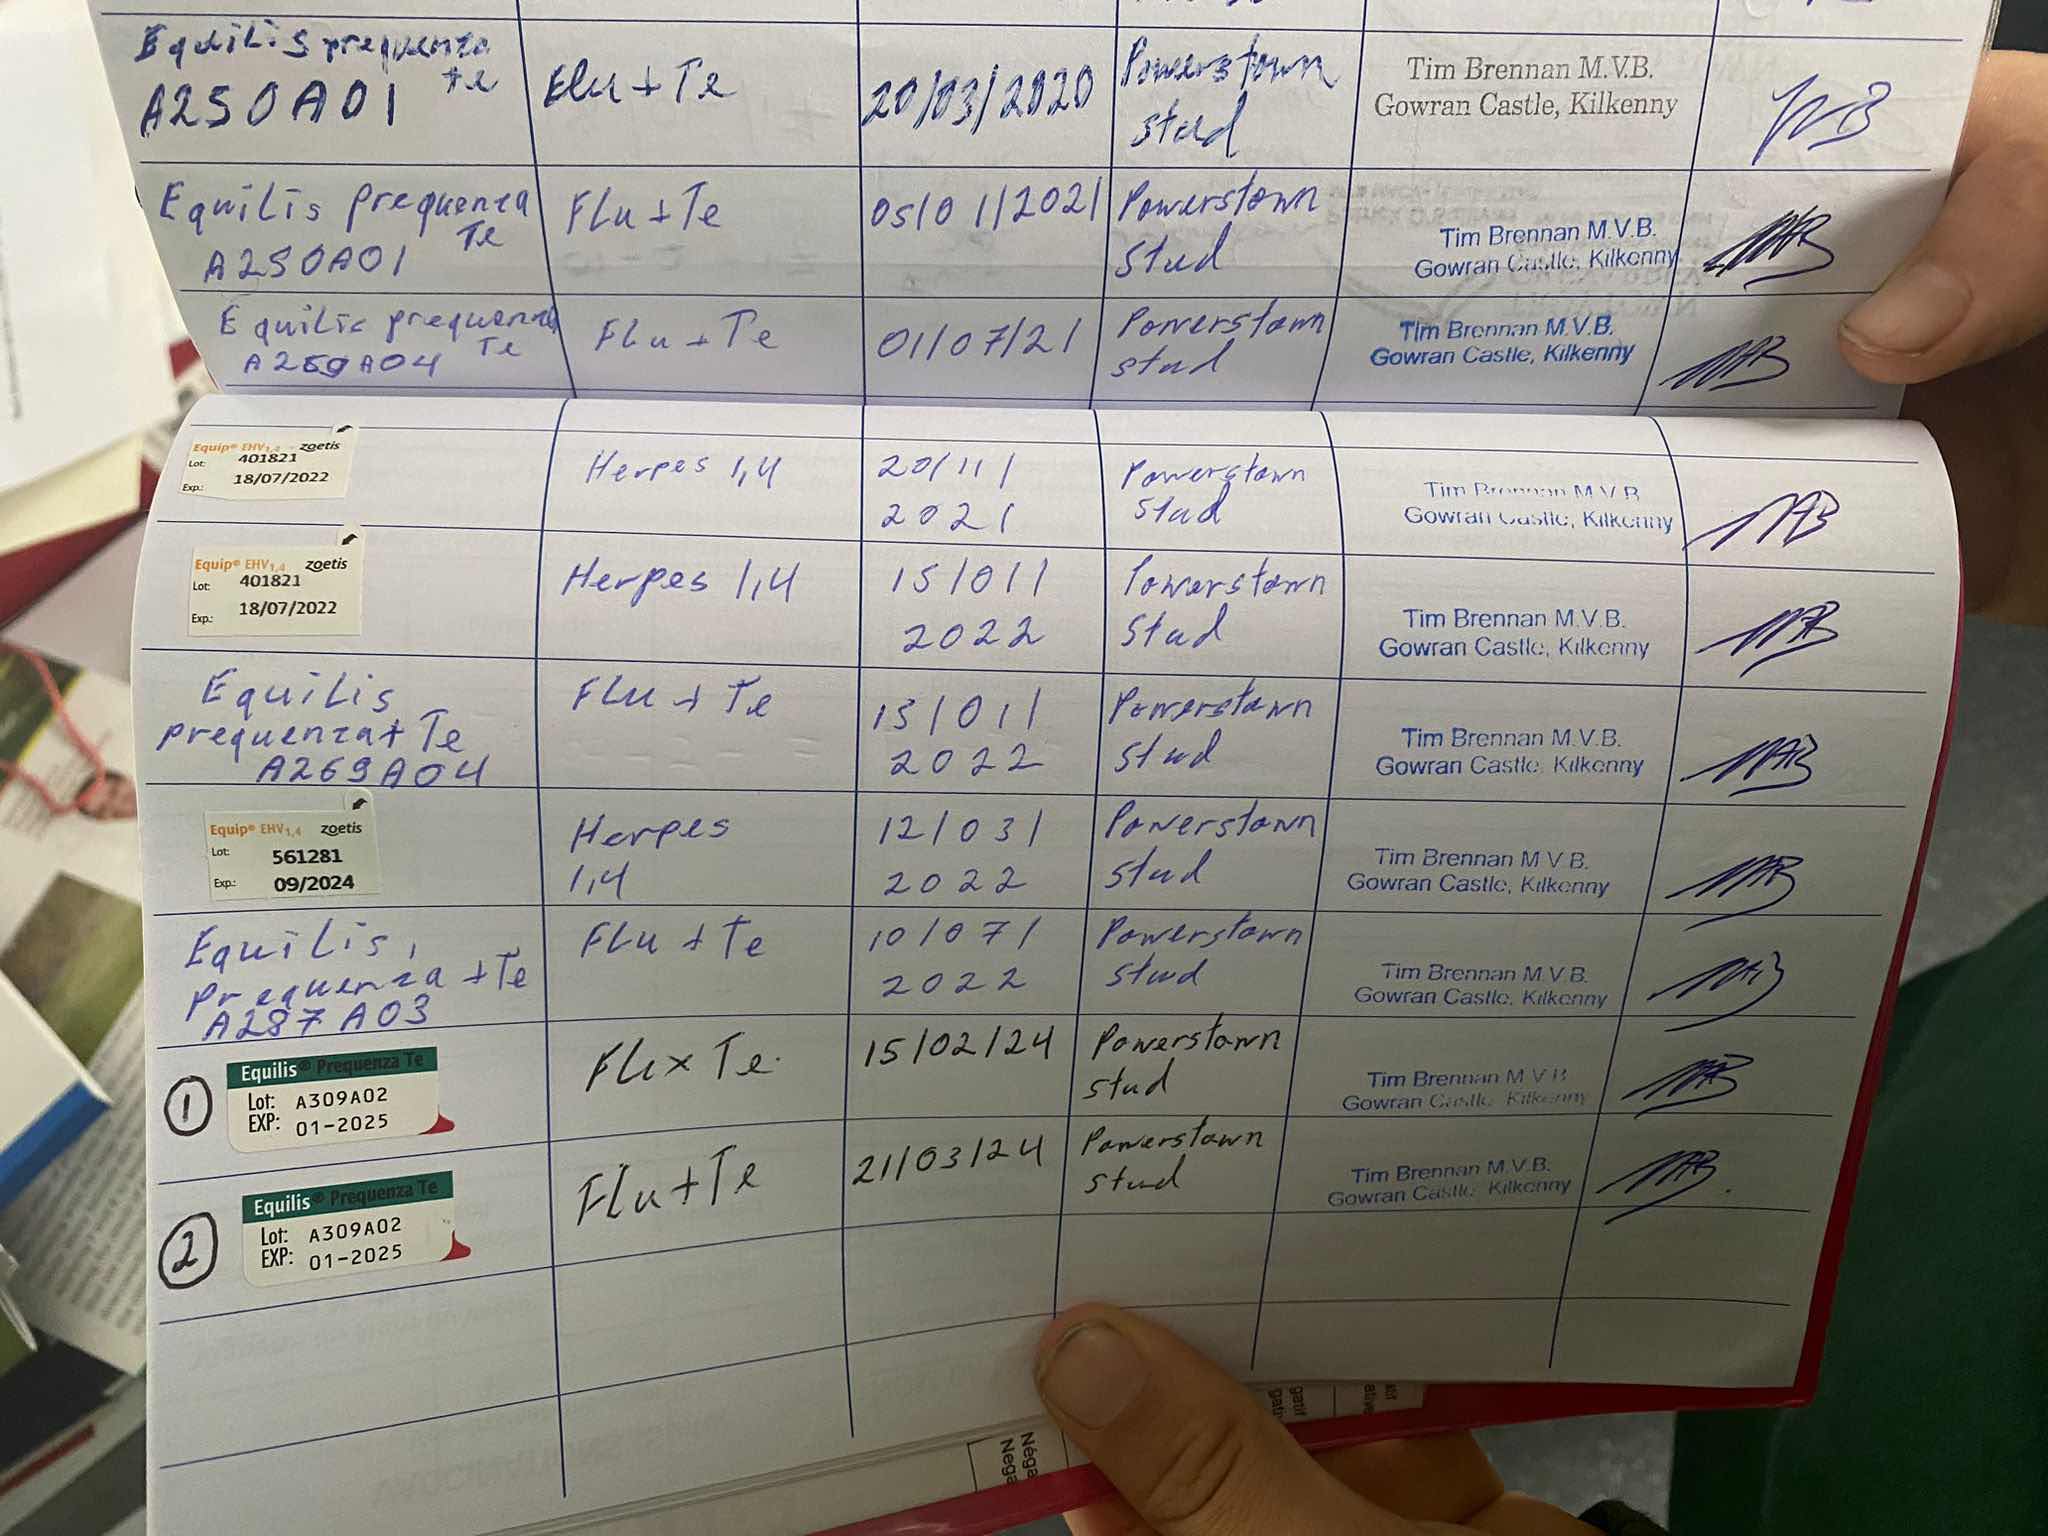 Equilis prequenza
te
A250A01
Flu + Te
20/03/2020
Powerstown
stud
Tim Brennan M.V.B.
Gowran Castle, Kilkenny
Equilis prequenza
Te
A250A01
Flu + Te
05/01/2021
Powerstown
stud
Tim Brennan M.V.B.
Gowran Castle, Kilkenny
Equilis prequenza
Te
Flu + Te
01/07/21
Powerstown
stud
Tim Brennan M.V.B.
Gowran Castle, Kilkenny
Equip® EHV1,4 zoetis
Lot: 401821
Exp.: 18/07/2022
Herpes 1,4
20/11/
2021
Powerstown
stud
Tim Brennan M.V.B.
Gowran Castle, Kilkenny
Equip® EHV1,4 zoetis
Lot: 401821
Exp.: 18/07/2022
Herpes 1,4
15/01/
2022
Powerstown
stud
Tim Brennan M.V.B.
Gowran Castle, Kilkenny
Equilis
prequenza + Te
A269A04
Flu + Te
15/01/
2022
Powerstown
stud
Tim Brennan M.V.B.
Gowran Castle, Kilkenny
Equip® EHV1,4 zoetis
Lot: 561281
Exp.: 09/2024
Herpes
1,4
12/03/
2022
Powerstown
stud
Tim Brennan M.V.B.
Gowran Castle, Kilkenny
Equilis,
prequenza + Te
A287A03
Flu + Te
10/07/
2022
Powerstown
stud
Tim Brennan M.V.B.
Gowran Castle, Kilkenny
1
Equilis® Prequenza Te
Lot: A309A02
EXP: 01-2025
Flu x Te.
15/02/24
Powerstown
stud
Tim Brennan M.V.B.
Gowran Castle, Kilkenny
2
Equilis® Prequenza Te
Lot: A309A02
EXP: 01-2025
Flu + Te
21/03/24
Powerstown
stud
Tim Brennan M.V.B.
Gowran Castle, Kilkenny